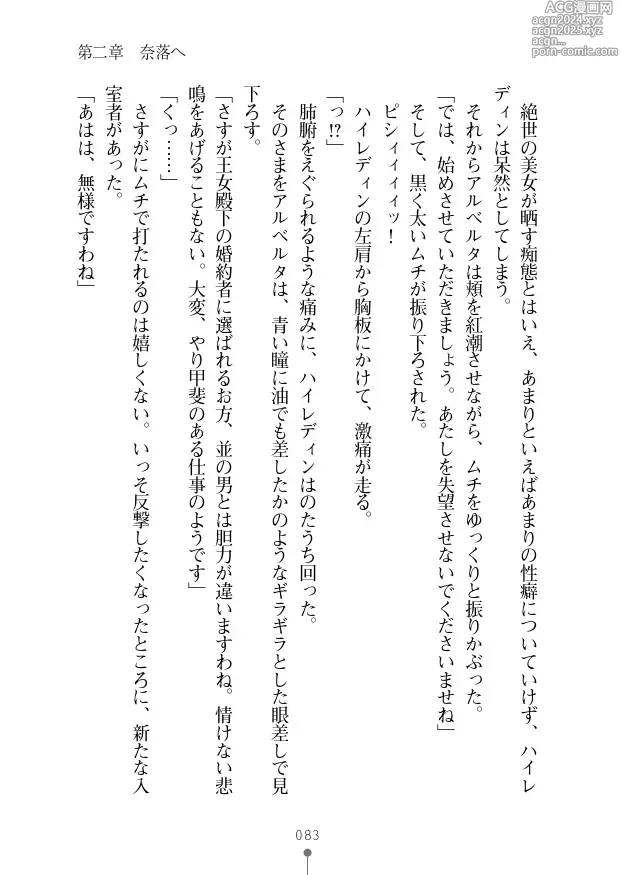 第二章　奈落へ
絶世の美女が晒す痴態とはいえ、あまりといえばあまりの性癖についていけず、ハイレ
ディンは呆然としてしまう。
それからアルベルタは頬を紅潮させながら、ムチをゆっくりと振りかぶった。
「では、始めさせていただきましょう。あたしを失望させないでくださいませね」
そして、黒く太いムチが振り下ろされた。
ピシィィィィッ！
ハイレディンの左肩から胸板にかけて、激痛が走る。
「っ!?」
肺腑をえぐられるような痛みに、ハイレディンはのたうち回った。
そのさまをアルベルタは、青い瞳に油でも差したかのようなギラギラとした眼差しで見
下ろす。
「さすが王女殿下の婚約者に選ばれるお方、並の男とは胆力が違いますわね。情けない悲
鳴をあげることもない。大変、やり甲斐のある仕事のようです」
「くっ……」
さすがにムチで打たれるのは嬉しくない。いっそ反撃したくなったところに、新たな入
室者があった。
「あはは、無様ですわね」
083
ACG漫画网
acgn2024.com
acgn2025.com
porn-comic.com
ACG漫画网
acgn2024.com
acgn2025.com
porn-comic.com